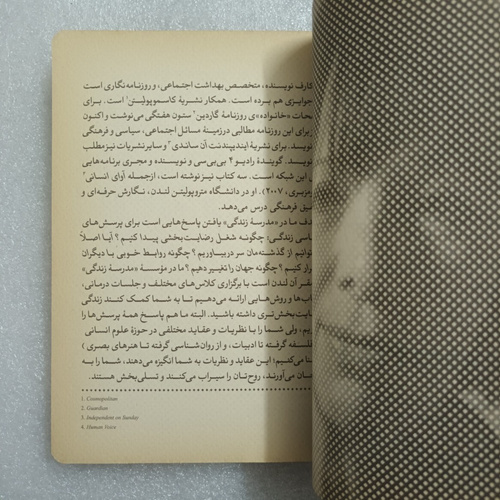 نویسنده، متخصص بهداشت اجتماعی، و روزنامه‌نگاری است
هم برده است. همکار نشریهٔ کاسموپولیتن¹ است. برای
«خانواده»ی روزنامهٔ گاردین² ستون هفتگی می‌نوشت و اکنون
برای این روزنامه مطالبی درزمینهٔ مسائل اجتماعی، سیاسی و فرهنگی
برای نشریهٔ ایندیپندنت آن ساندی³ و سایر نشریات نیز مطلب
گویندهٔ رادیو ۴ بی‌بی‌سی و نویسنده و مجری برنامه‌هایی
این شبکه است. سه کتاب نیز نوشته است، ازجمله آوای انسانی⁴
۲۰۰۷). او در دانشگاه متروپولیتن لندن، نگارش حرفه‌ای و
فرهنگی درس می‌دهد.
ما در «مدرسهٔ زندگی» یافتن پاسخ‌هایی است برای پرسش‌های
زندگی: چگونه شغل رضایت‌بخشی پیدا کنیم؟ آیا اصلاً
از گذشته‌مان سر دربیاوریم؟ چگونه روابط خوبی با دیگران
کنیم؟ چگونه جهان را تغییر دهیم؟ ما در مؤسسهٔ «مدرسهٔ زندگی»
آن لندن است با برگزاری کلاس‌های مختلف و جلسات درمانی،
و روش‌هایی ارائه می‌دهیم تا به شما کمک کنند زندگی
تری داشته باشید. البته ما هم پاسخ همهٔ پرسش‌ها را
ولی شما را با نظریات و عقاید مختلفی در حوزهٔ علوم انسانی
گرفته تا ادبیات، و از روان‌شناسی گرفته تا هنرهای بصری)
می‌کنیم؛ این عقاید و نظریات به شما انگیزه می‌دهند، شما را به
می‌آورند، روح‌تان را سیراب می‌کنند و تسلی‌بخش هستند.
1. Cosmopolitan
2. Guardian
3. Independent on Sunday
4. Human Voice